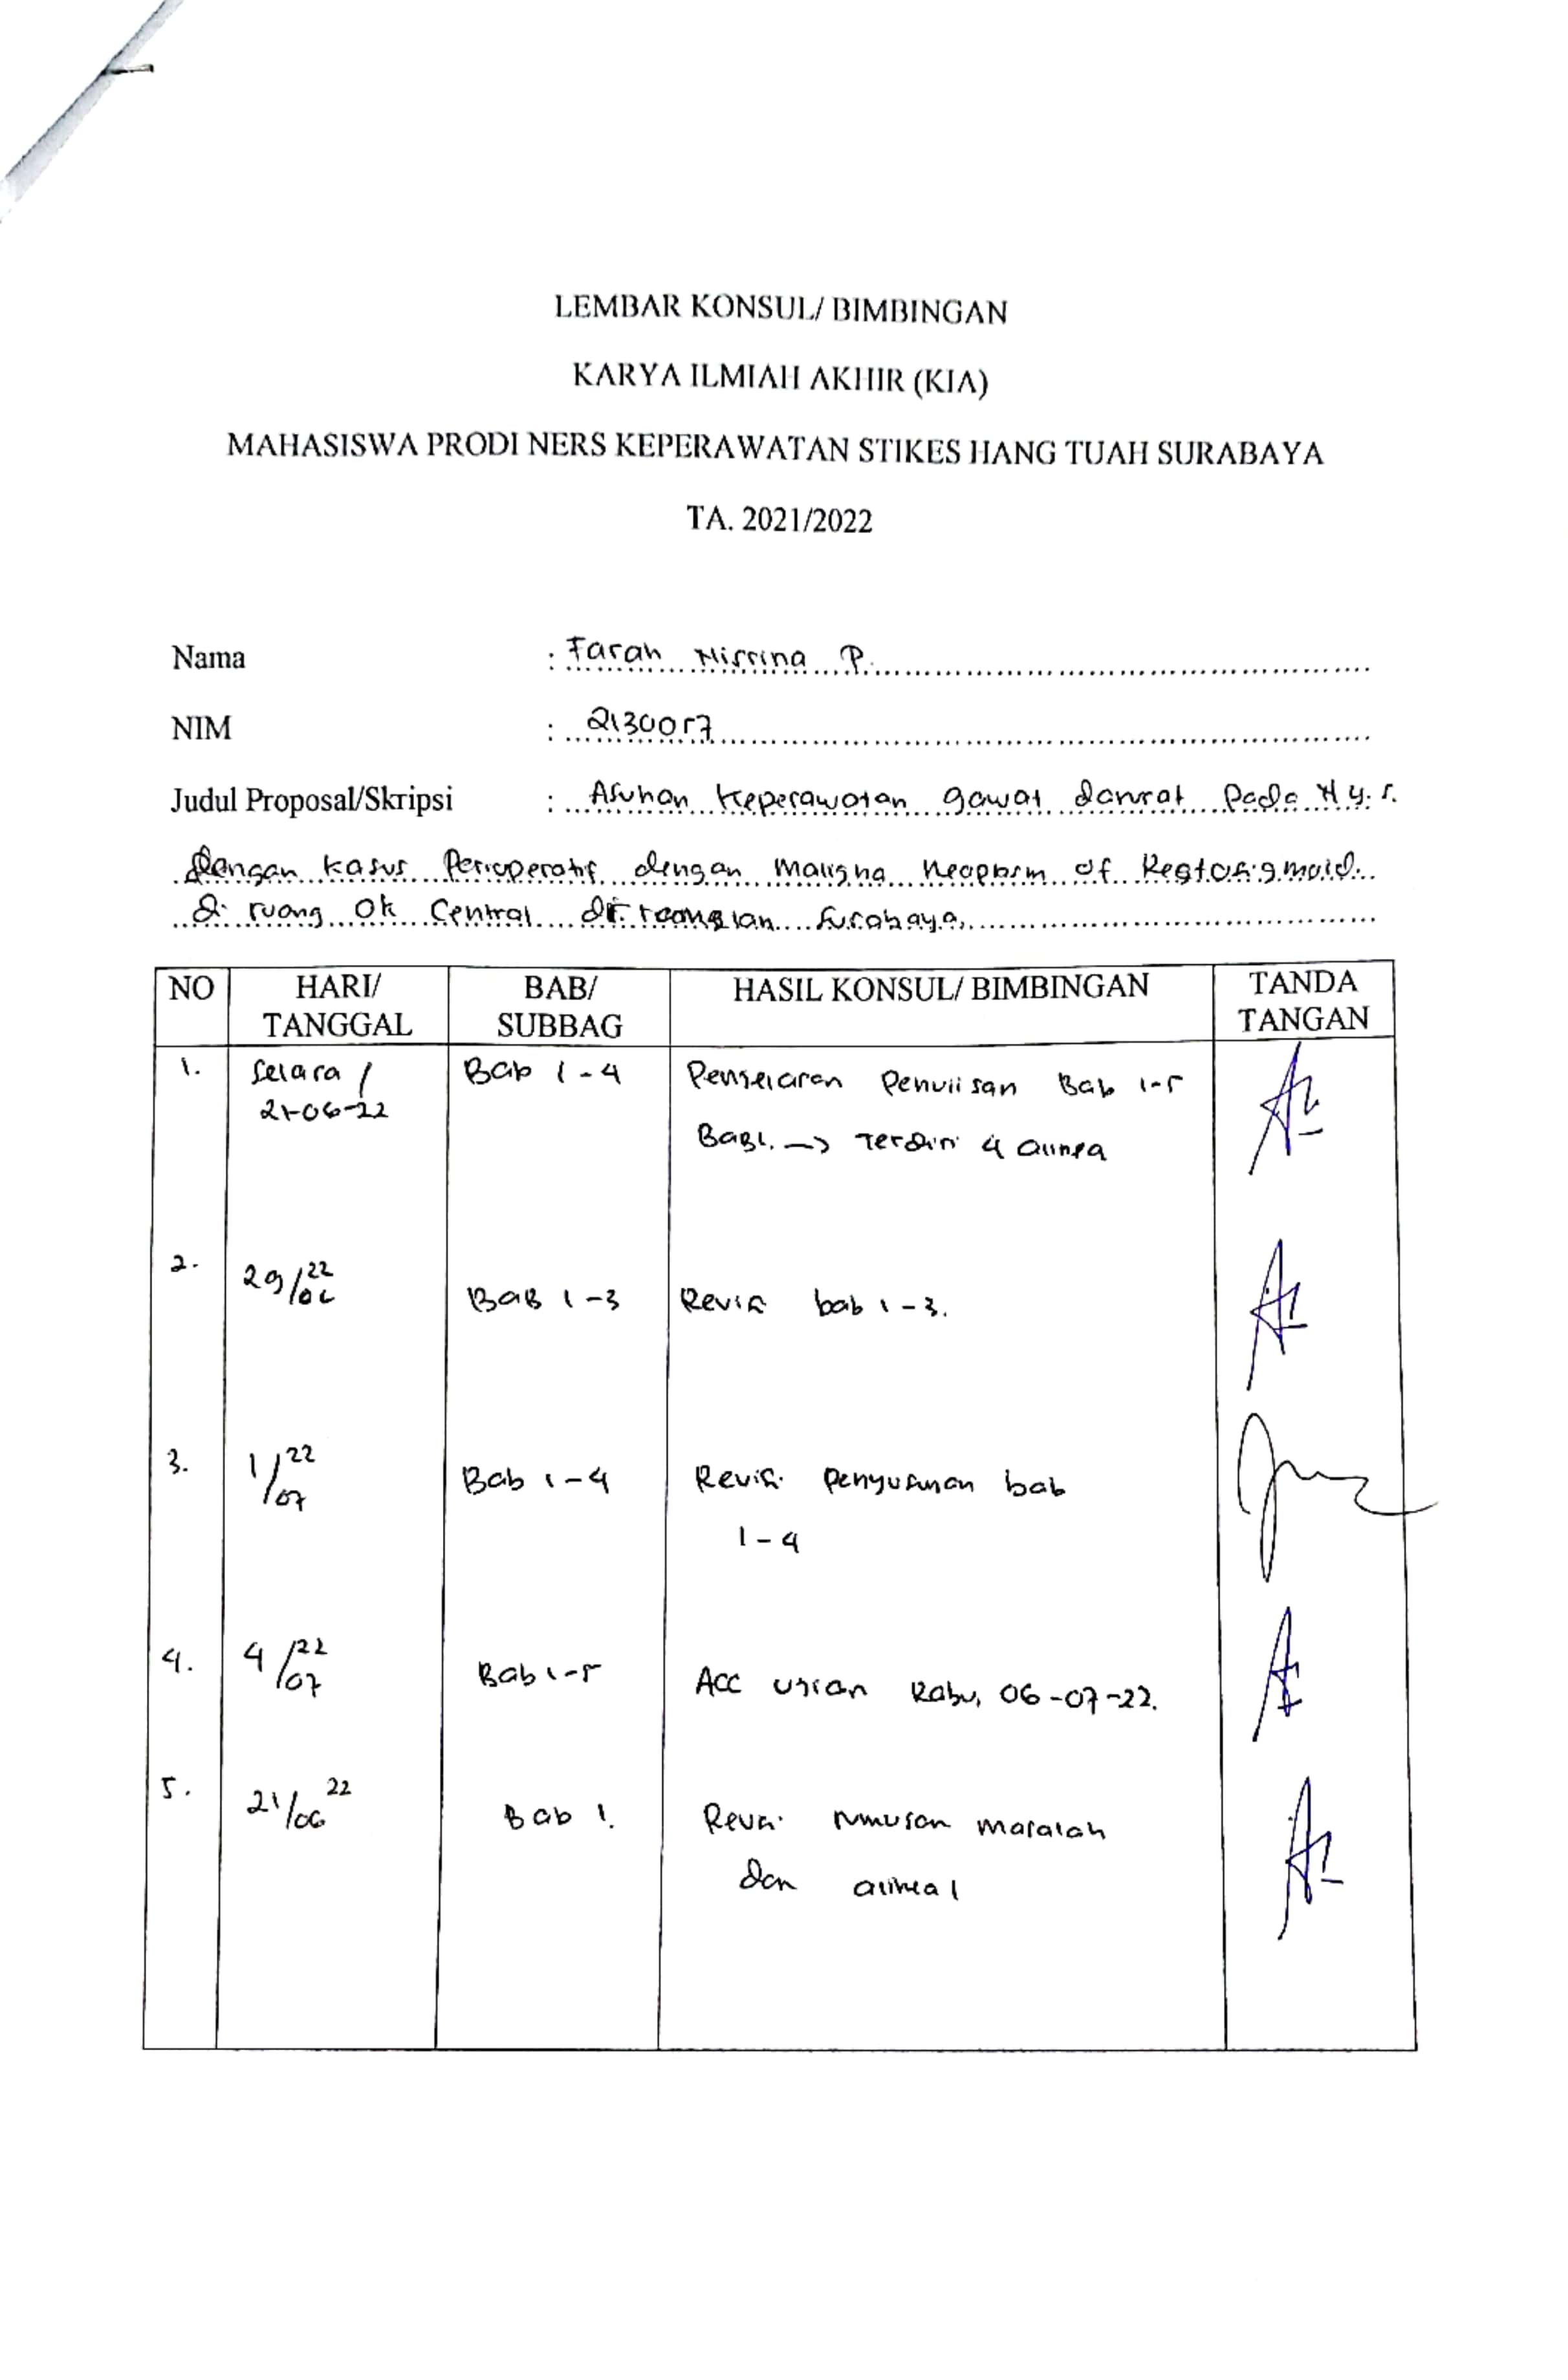 LEMBAR KONSUL/ BIMBINGAN
KARYA ILMIAH AKHIR (KIA)
MAHASISWA PRODI NERS KEPERAWATAN STIKES HANG TUAH SURABAYA
TA. 2021/2022
Nama : Farah Nisrina P.
NIM : 2130057
Judul Proposal/Skripsi : Asuhan Keperawatan gawat darurat pada Ny. S.
dengan kasus Perioperatif dengan Maligna neoplasm of Rectosigmoid
di ruang OK Central Surabaya.
NO HARI/ TANGGAL BAB/ SUBBAG HASIL KONSUL/ BIMBINGAN TANDA TANGAN
1. Selasa / Bab 1-4 Penulisan Bab 1-5
21-06-22 Bab 1. → Terdiri 4 alinea
2. 29/06 22 BAB 1-3 Revisi bab 1-3.
3. 1/07 22 Bab 1-4 Revisi penyusunan bab
1-4
4. 4/07 22 Bab 1-5 Acc ujian Rabu, 06-07-22.
5. 21/06 22 Bab 1. Revisi rumusan masalah
dan alinea 1